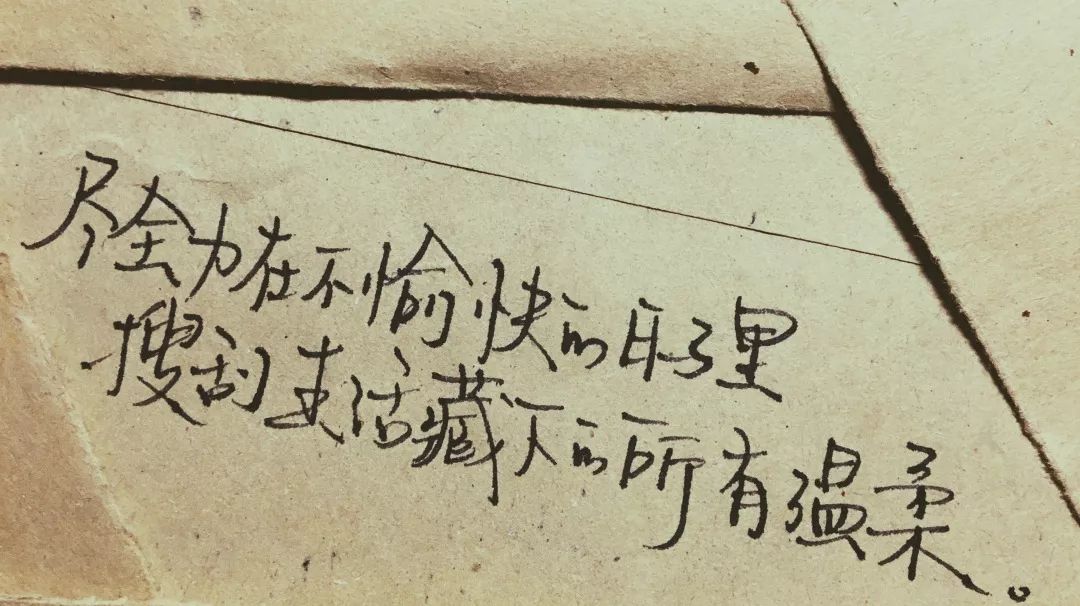 尽全力在不愉快的日子里
搜刮生活藏下的所有温柔。